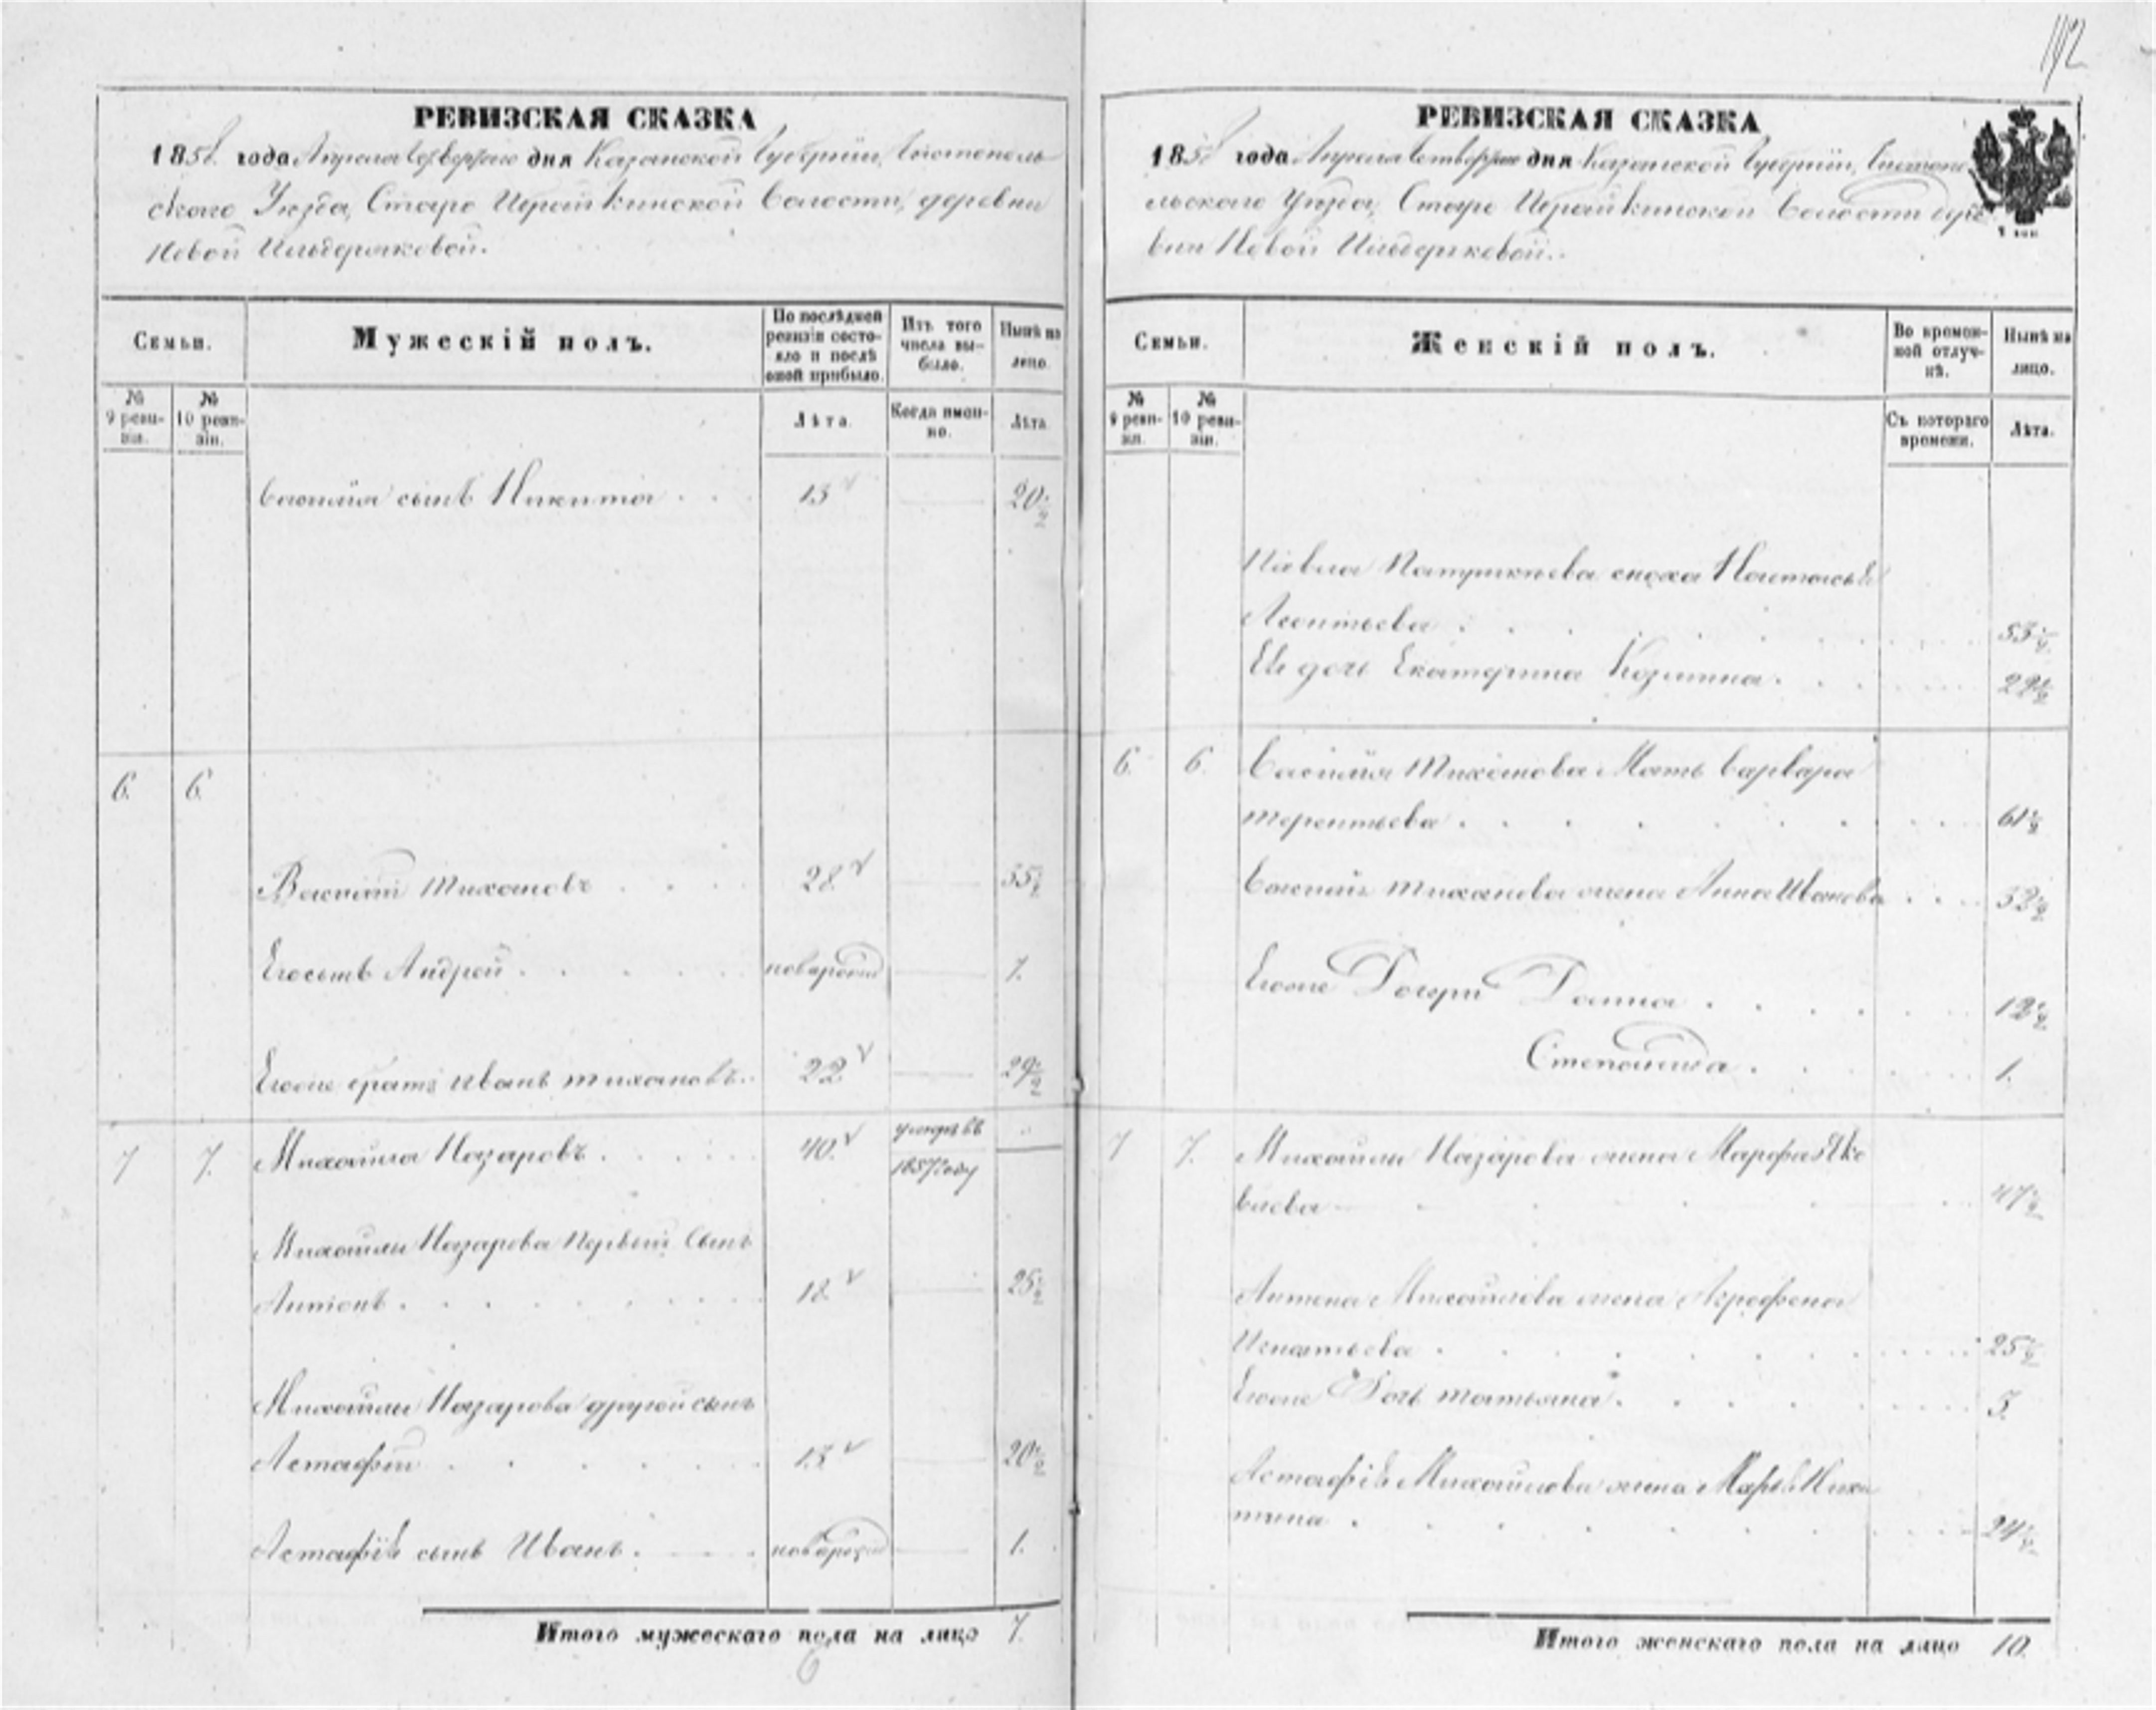 112
РЕВИЗСКАЯ СКАЗКА
1858 года Апреля Четвертаго дня Казанской Губернiи, Чистополь
скаго Уезда, Старо Играйкинской волости, деревни
Новой Ильдеряковой.
Семьи.
Мужескiй полъ.
По послѣдней ревизiи состояло и послѣ оной прибыло.
Изъ того числа выбыло.
Нынѣ на лицо.
№ 9 ревизiи.
№ 10 ревизiи.
Лѣта.
Когда именно.
Лѣта.
Василiя сынъ Никита 13 20½
6. 6.
Василiй Тихановъ 28 35½
Его сынъ Андрей новорожд 7.
Егоже братъ Иванъ Тихановъ 22 29½
7 7. Михайла Назаровъ 40. умеръ въ 1857 году
Михайлы Назарова Первый Сынъ
Антонъ 18 25½
Михайлы Назарова другой сынъ
Астафiй 13 20½
Астафiя сынъ Иванъ новорожд 1.
Итого мужескаго пола на лицо 7.
6
РЕВИЗСКАЯ СКАЗКА
1858 года Апреля Четвертаго дня Казанской Губернiи, Чистопо
льскаго Уезда, Старо Играйкинской волости дере
вни Новой Ильдеряковой.
Семьи.
Женскiй полъ.
Во временной отлучкѣ.
Нынѣ на лицо.
№ 9 ревизiи.
№ 10 ревизiи.
Съ котораго времени.
Лѣта.
Павла сноха Настасья
Леонтьева 53½
Ея дочь Екатерина Козмина 22½
6. 6. Василiя Тиханова Мать Варвара
Терентьева 61½
Василiя Тиханова жена Анна Иванова 32½
Егоже Дочери Домна 12½
Степанида 1.
7 7. Михайлы Назарова жена Марфа Яко
влева 47½
Антона Михайлова жена Аграфена
Игнатьева 25½
Егоже Дочь Татьяна 3.
Астафiя Михайлова жена Марья Ники
тина 24½
Итого женскаго пола на лицо 10.